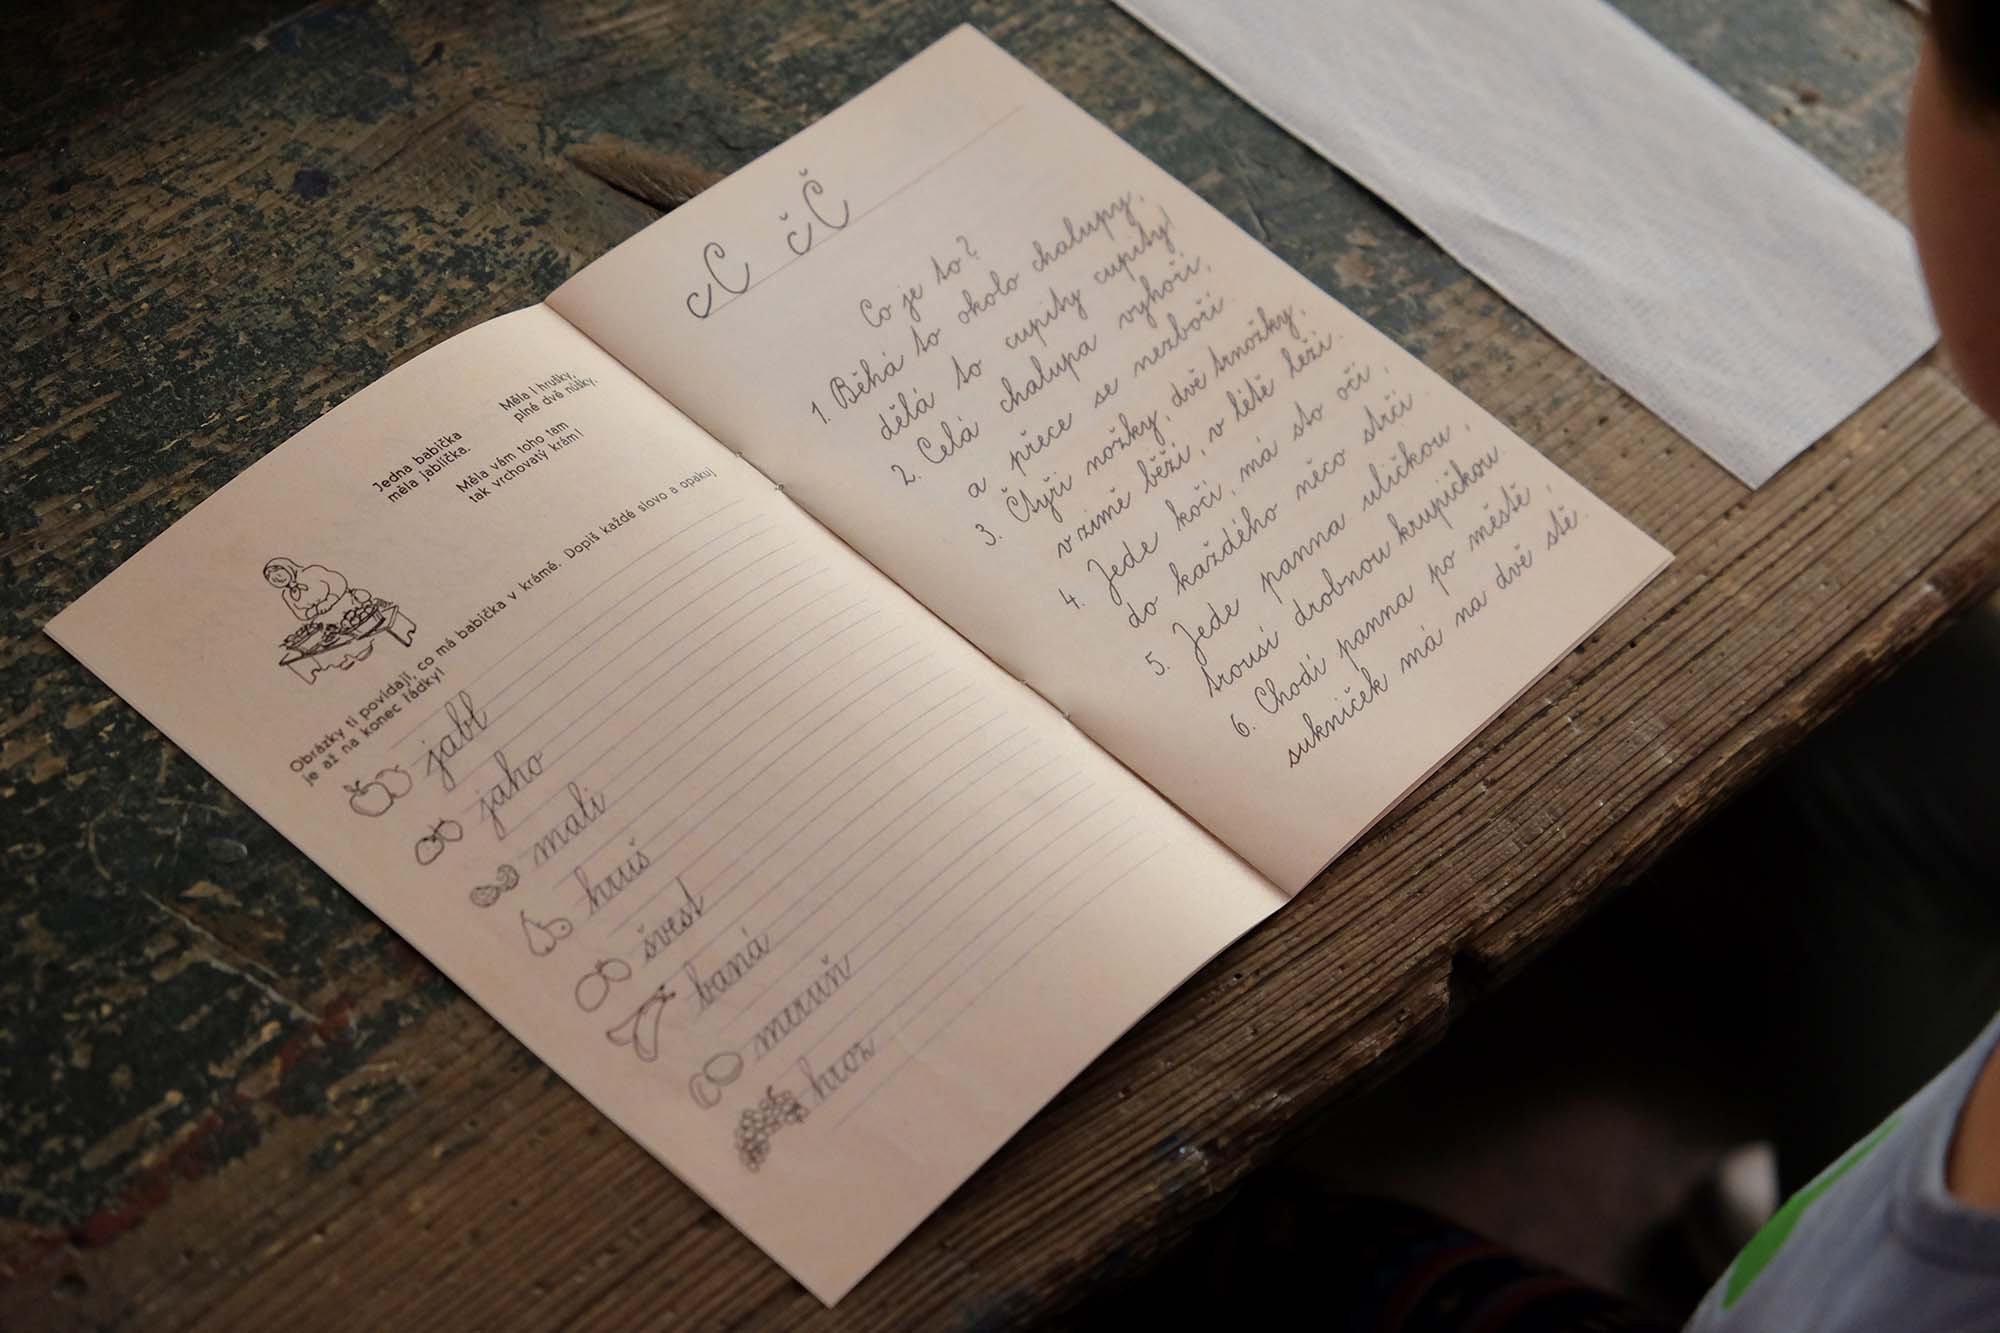 Jedna babička
měla jablíčka.
Měla i hrušky,
plné dvě nůšky.
Měla vám toho tam
tak vrchovatý krám!
Obrázky ti povídají, co má babička v krámě. Dopiš každé slovo a opakuj
je až na konec řádky!
jabl
jaho
mali
hruš
švest
baná
meruň
hroz
cC čČ
Co je to?
1. Běhá to okolo chalupy,
dělá to cupity cupity!
2. Celá chalupa vyhoří,
a přece se nezboří.
3. Čtyři nožky, dvě trnožky,
v zimě běží, v létě leží.
4. Jede kočí, má sto očí,
do každého něco strčí.
5. Jede panna uličkou,
trousí drobnou krupičkou.
6. Chodí panna po městě,
sukniček má na dvě stě.